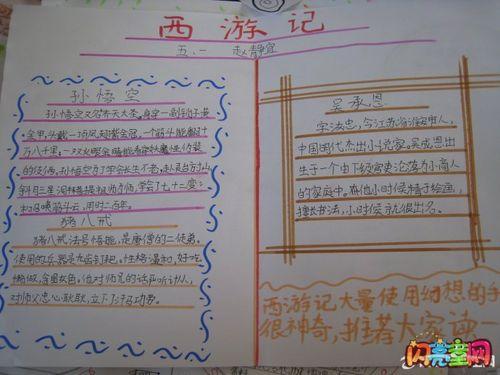 西游记
五、一 赵静宜
孙悟空
孙悟空又名齐天大圣。身穿一副锁子黄
金甲，头戴一顶凤翅紫金冠，一个筋斗能翻十
万八千里。一双火眼金睛能看穿妖魔鬼怪伪装
的伎俩。孙悟空为了学会长生不老，赴灵台方寸山
斜月三星洞拜菩提祖师为师，学会了七十二变
和筋斗云，用时二百年。
猪八戒
猪八戒法号悟能，是唐僧的二徒弟，
使用的兵器是九齿钉耙。性格温和，好吃
懒做，贪图女色。他对师兄的话言听计从，
对师父忠心耿耿，立下汗马功劳。
吴承恩
字汝忠，今江苏省淮安人，
中国明代杰出小说家。吴成恩出
生于一个由下级官吏沦落为小商人
的家庭中。他小时候精于绘画，
擅长书法，小时候就很出名。
西游记大量使用幻想的手
很神奇，推荐大家读一
闪亮童网